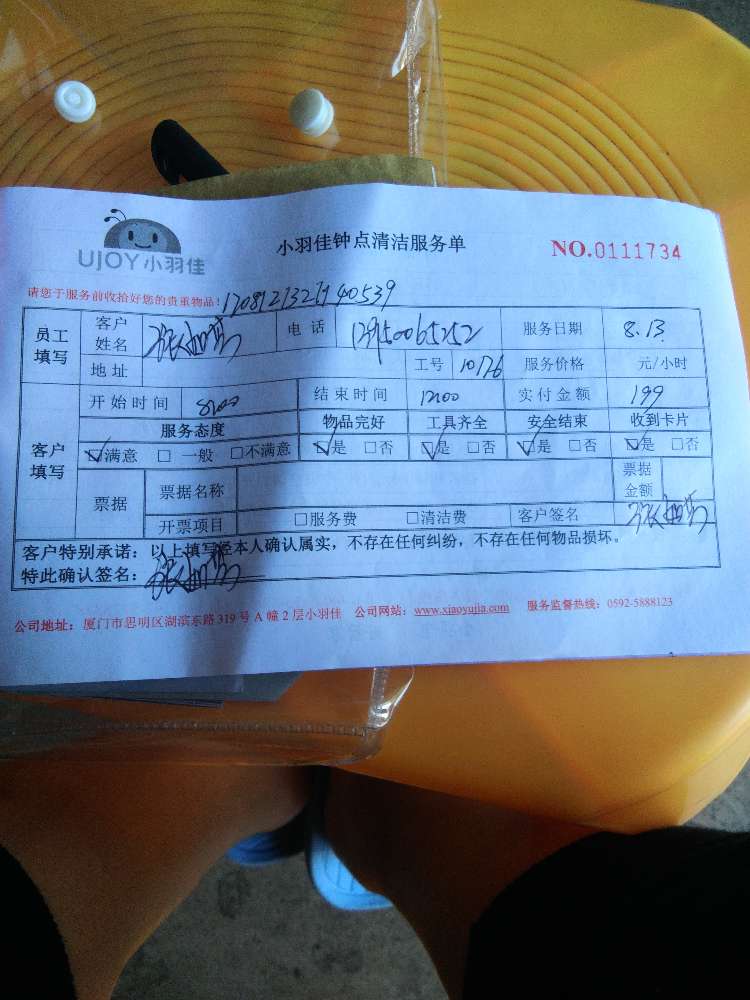 UJOY小羽佳
小羽佳钟点清洁服务单
NO.0111734
请您于服务前收拾好您的贵重物品!
员工填写 客户姓名 电话 服务日期 8.13
地址 工号 10176 服务价格 元/小时
开始时间 8:00 结束时间 12:00 实付金额 199
客户填写 服务态度 物品完好 工具齐全 安全结束 收到卡片
☑满意 □一般 □不满意 ☑是 □否 ☑是 □否 ☑是 □否 ☑是 □否
票据 票据名称 票据金额
开票项目 □服务费 □清洁费 客户签名
客户特别承诺:以上填写经本人确认属实,不存在任何纠纷,不存在任何物品损坏。
特此确认签名:
公司地址:厦门市思明区湖滨东路319号A幢2层小羽佳 公司网站:www.xiaoyujia.com 服务监督热线:0592-5888123